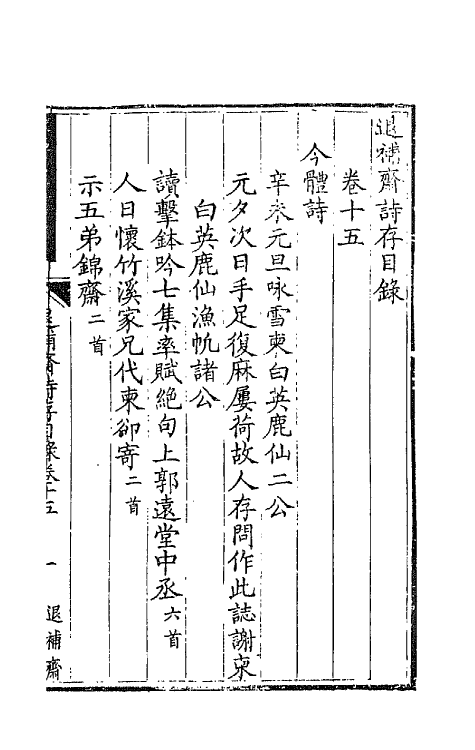 退補齋詩存目錄
卷十五
今體詩
辛未元旦咏雪柬白英鹿仙二公
元夕次日手足復麻屢荷故人存問作此誌謝柬
白英鹿仙漁帆諸公
讀擊鉢吟七集率賦絕句上郭遠堂中丞六首
人日懷竹溪家兄代柬卻寄二首
示五弟錦齋二首
退補齋詩存目錄卷十五
一
退補齋